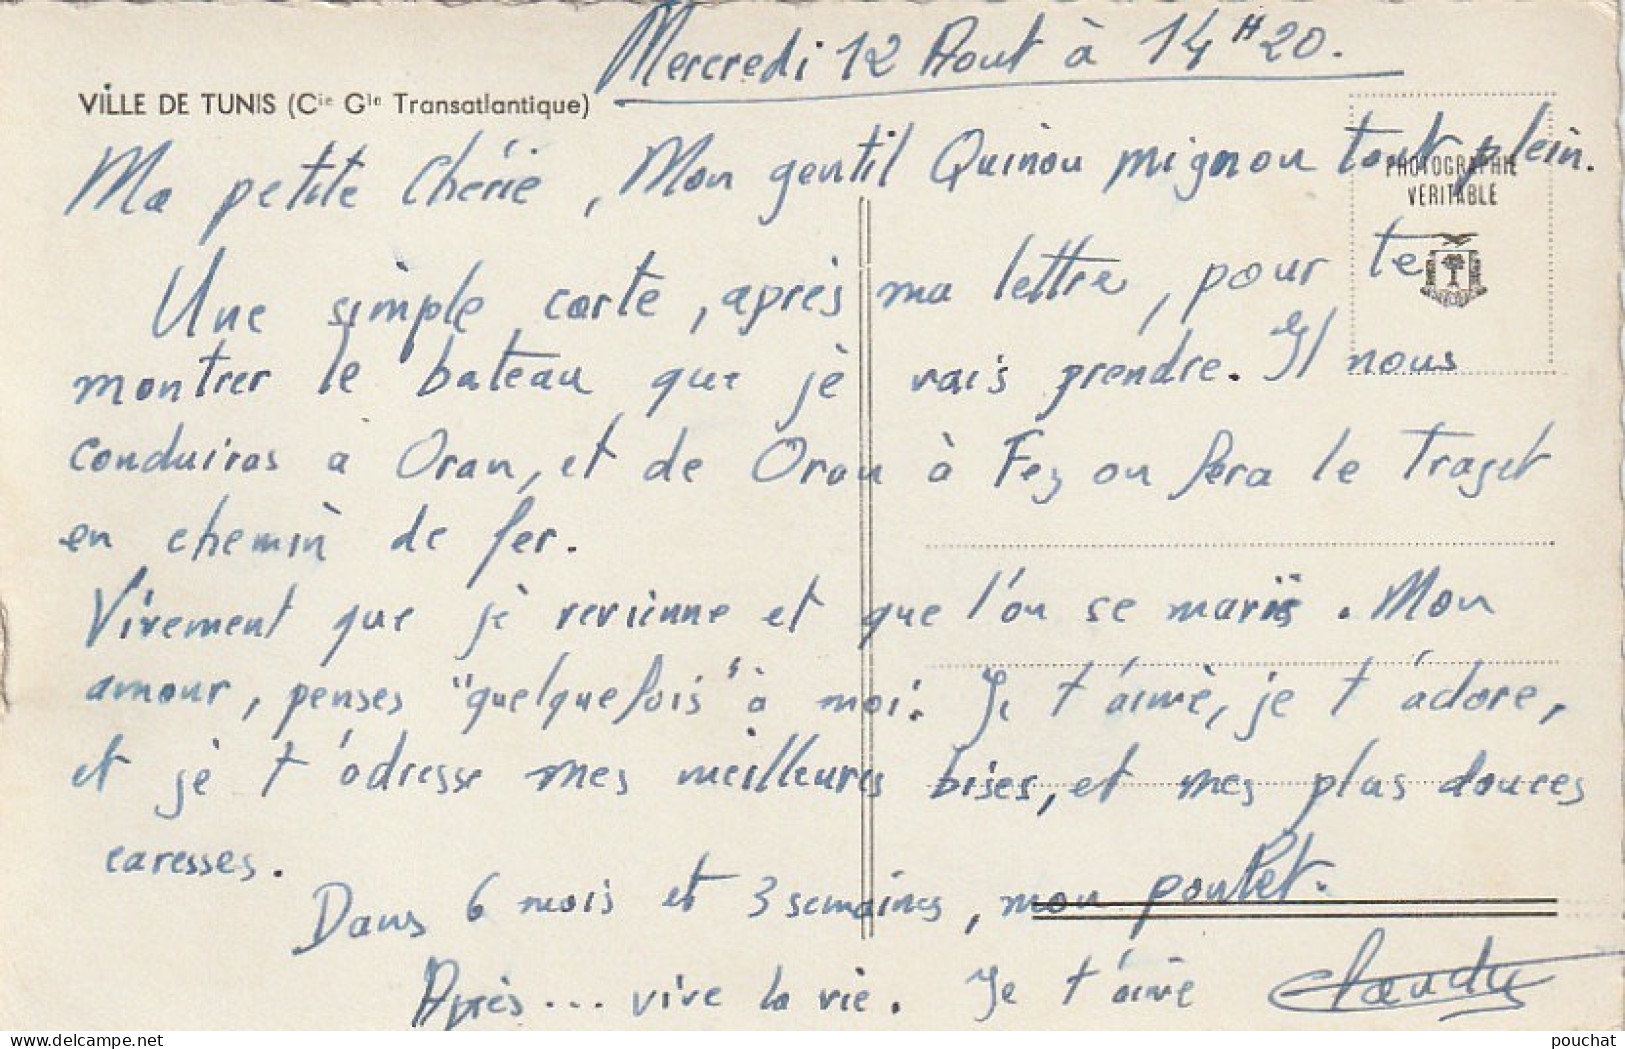 Mercredi 12 Aout à 14 H 20.
VILLE DE TUNIS (Cie Gle Transatlantique)
Ma petite Chérie, Mon gentil Quinou mignon tout plein.
PHOTOGRAPHIE
VERITABLE
Une simple carte, après ma lettre, pour te
montrer le bateau que je vais prendre. Il nous
conduiras à Oran, et de Oran à Fez on fera le Trajet
en chemin de fer.
Vivement que je revienne et que l'on se maris. Mon
amour, penses "quelquefois" à moi. Je t'aime, je t'adore,
et je t'adresse mes meilleures bises, et mes plus douces
caresses.
Dans 6 mois et 3 semaines, mon poulet.
Après... vive la vie. Je t'aime Claudy
pouchat